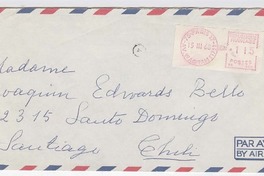 Madame
Joaquin Edwards Bello
2315 Santo Domingo
Santiago Chili
PAR AV
BY AIR